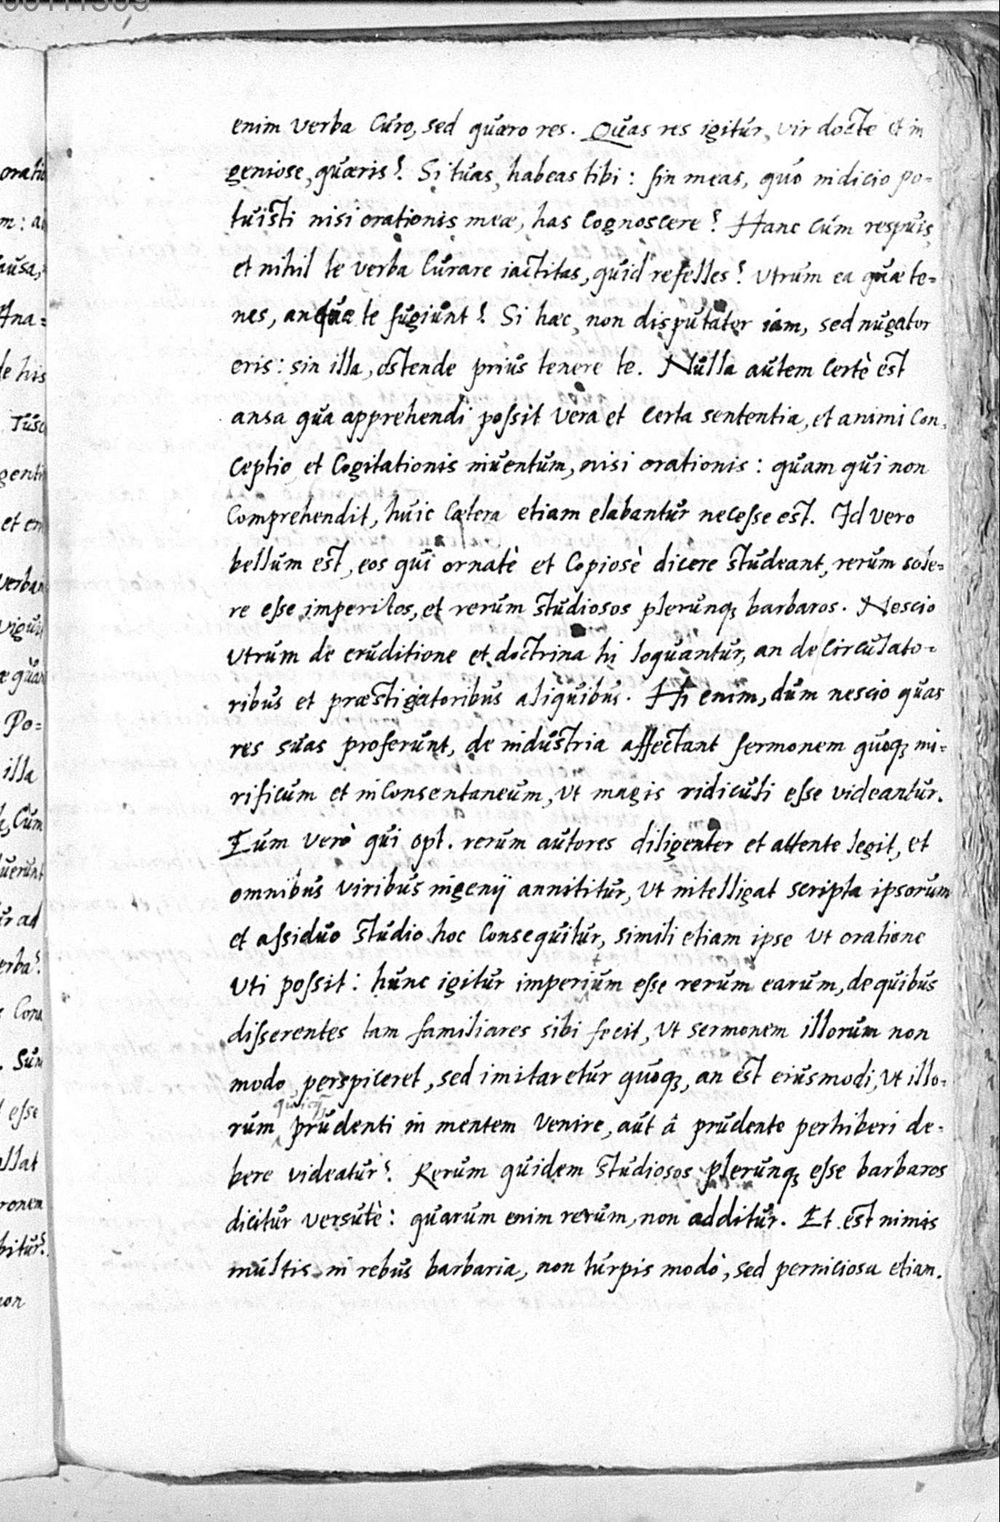 enim verba curo, sed quæro res. Quas res igitur, vir docte et in
geniose, quæris? Si tuas, habeas tibi: sin meas, quo indicio po-
tuisti nisi orationis meæ, has cognoscere? Hanc cum respuis,
et nihil te verba curare iactitas, quid refelles? Utrum ea quæ te=
nes, an quæ te fugiunt? Si hæc, non disputator iam, sed nugator
eris: sin illa, ostende prius tenere te. Nulla autem certè est
ansa qua apprehendi possit vera et certa sententia, et animi con-
ceptio et cogitationis inventum, nisi orationis: quam qui non
comprehendit, huic cætera etiam elabantur necesse est. Id vero
bellum est, eos qui ornatè et copiosè dicere studeant, rerum sole=
re esse imperitos, et rerum studiosos plerunq; barbaros. Nescio
utrum de eruditione et doctrina hi loquantur, an de circulato=
ribus et præstigatoribus aliquibus. Hi enim, dum nescio quas
res suas proferunt, de industria affectant sermonem quoq; mi=
rificum et inconsentaneum, ut magis ridiculi esse videantur.
Eum verò qui opt. rerum autores diligenter et attente legit, et
omnibus viribus ingenij annititur, ut intelligat scripta ipsorum
et assiduo studio hoc consequitur, simili etiam ipse ut oratione
uti possit: hunc igitur imperium esse rerum earum, de quibus
disserentes tam familiares sibi fecit, ut sermonem illorum non
modo perspiceret, sed imitaretur quoq;, an est eiusmodi, ut illo=
rum prudenti in mentem venire, aut â prudente perhiberi de-
bere videatur? Rerum quidem studiosos plerunq; esse barbaros
dicitur versutè: quarum enim rerum, non additur. Et est nimis
multis in rebus barbaria, non turpis modò, sed perniciosa etiam.